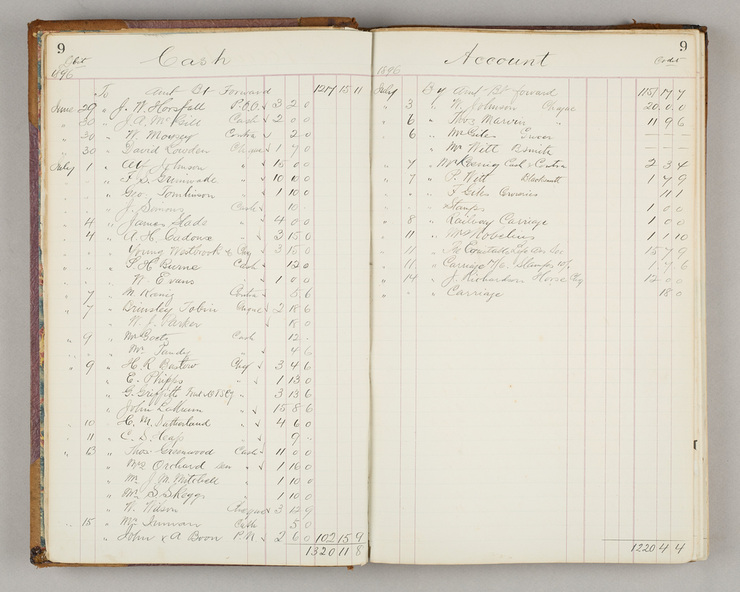 9
Debit
Cash
1896
To Amt Bt Forward 1217 15 11
June 29 " J. W. Horsfall P.O.O 3 2 0
" 30 " J. A. McGill Cash 2 0 0
" 30 " W. Mowsey Contra 2 0
" 30 " David Lowden Cheque 1 7 0
July 1 " Johnson " 15 0 0
" " F. S. Grimwade " 10 10 0
" " Geo Tomlinson " 1 10 0
" J. Simons Cash 10
" 4 " James Slads " 4 0 0
" 4 " A. H. Cadoux " 3 15 0
" Young Westbrook & Coy 3 15 0
" " S. H. Burne Cash 12 0
" W. Evans " 1 0 0
" 7 " M. Koenig Contra 5 6
" 7 " Brinsley Tobin Cheque 2 18 6
" W. J. Parker " 18 0
" 9 " Mr Cash 12
" Mr Tandy " 4 6
" 9 " H. R. Bastow Chq 3 4 6
" E. Phipps " 1 13 0
" G. Griffith 3 13 6
" John " 15 8 6
" 10 " H. M. Sutherland " 4 6 0
" 11 " C. S. Heap " 9
" 13 " Thos Greenwood Cash 11 0 0
" Mrs Orchard Sen " 1 16 0
" Mr J. M. Mitchell 1 10 0
" Mr S Skeggs 1 10 0
" W. Wilson Cheque 3 12 9
" 15 " Mr Cash 5 0
" John & A Boon P.N 2 6 0 102 15 9
1320 11 8
9
Account
Credit
1896
July By Amt Bt forward 1151 7 7
" 3 " W. Johnson Cheque 20 0 0
" 6 " Thos Marven " 11 9 6
" 6 " Mr Giles
" Mr Witt Bsmith
" 7 " Mr Koenig Cash & Contra 2 3 4
" 7 " P. Witt Blacksmith 1 7 9
" F Giles 4 1
" Stamps 1 0 0
" 8 " Railway Carriage 1 0 0
" 11 " Mr Nobelius 1 1 10
" 11 " 15 7 9
" 11 " Carriage Stamps 1 7 6
" 14 " J. Richardson Horse Chq 12 0 0
" " Carriage 18 0
1220 4 4